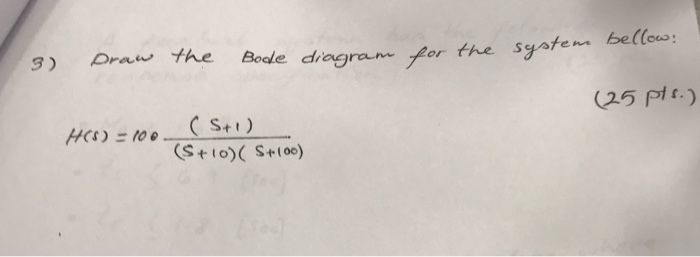 3) Draw the Bode diagram for the system bellow:
(25 pts.)
H(s) = 100 (S+1)
(S+10)(S+100)